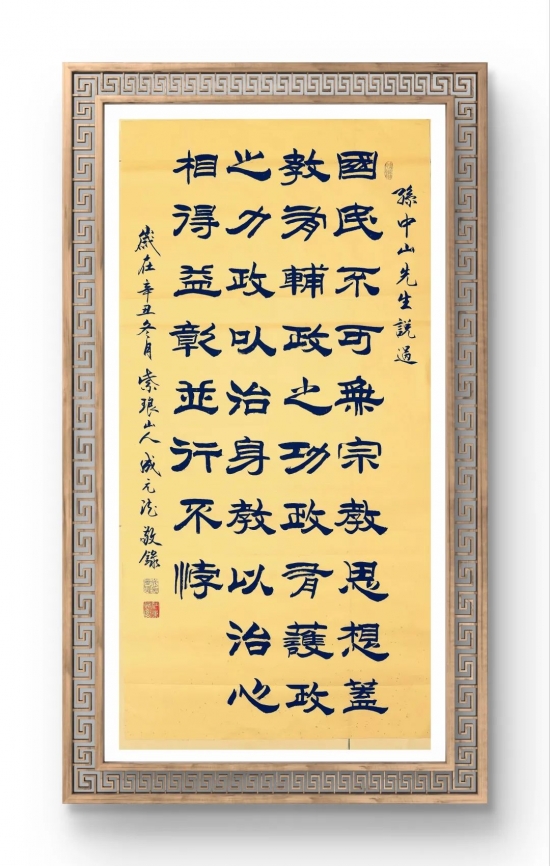 孫中山先生説過
國民不可無宗教思想蓋
教有輔政之功政有護政
之力政以治身教以治心
相得益彰並行不悖
歲在辛丑冬月紫琅山人成元敬錄